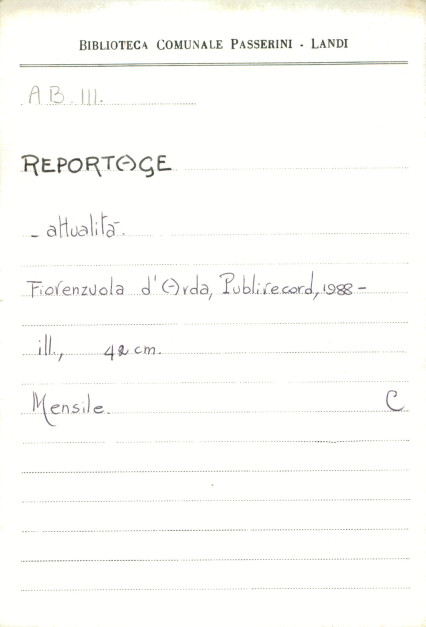 BIBLIOTECA COMUNALE PASSERINI - LANDI
AB. III.
REPORTAGE
- attualità.
Fiorenzuola d'Arda, Publirecord, 1988 -
ill., 42 cm.
Mensile. C